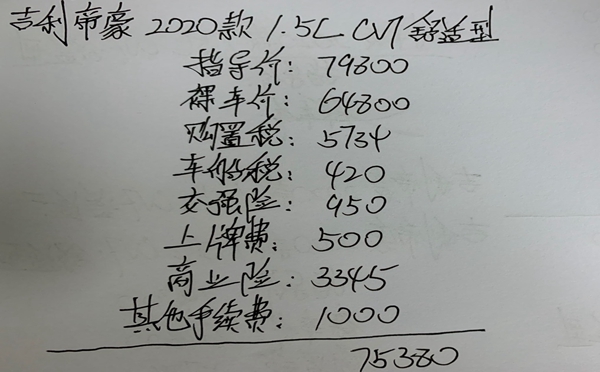 吉利帝豪 2020款 1.5L CVT 舒适型
指导价: 79800
裸车价: 64800
购置税: 5734
车船税: 420
交强险: 950
上牌费: 500
商业险: 3345
其他手续费: 1000
75380